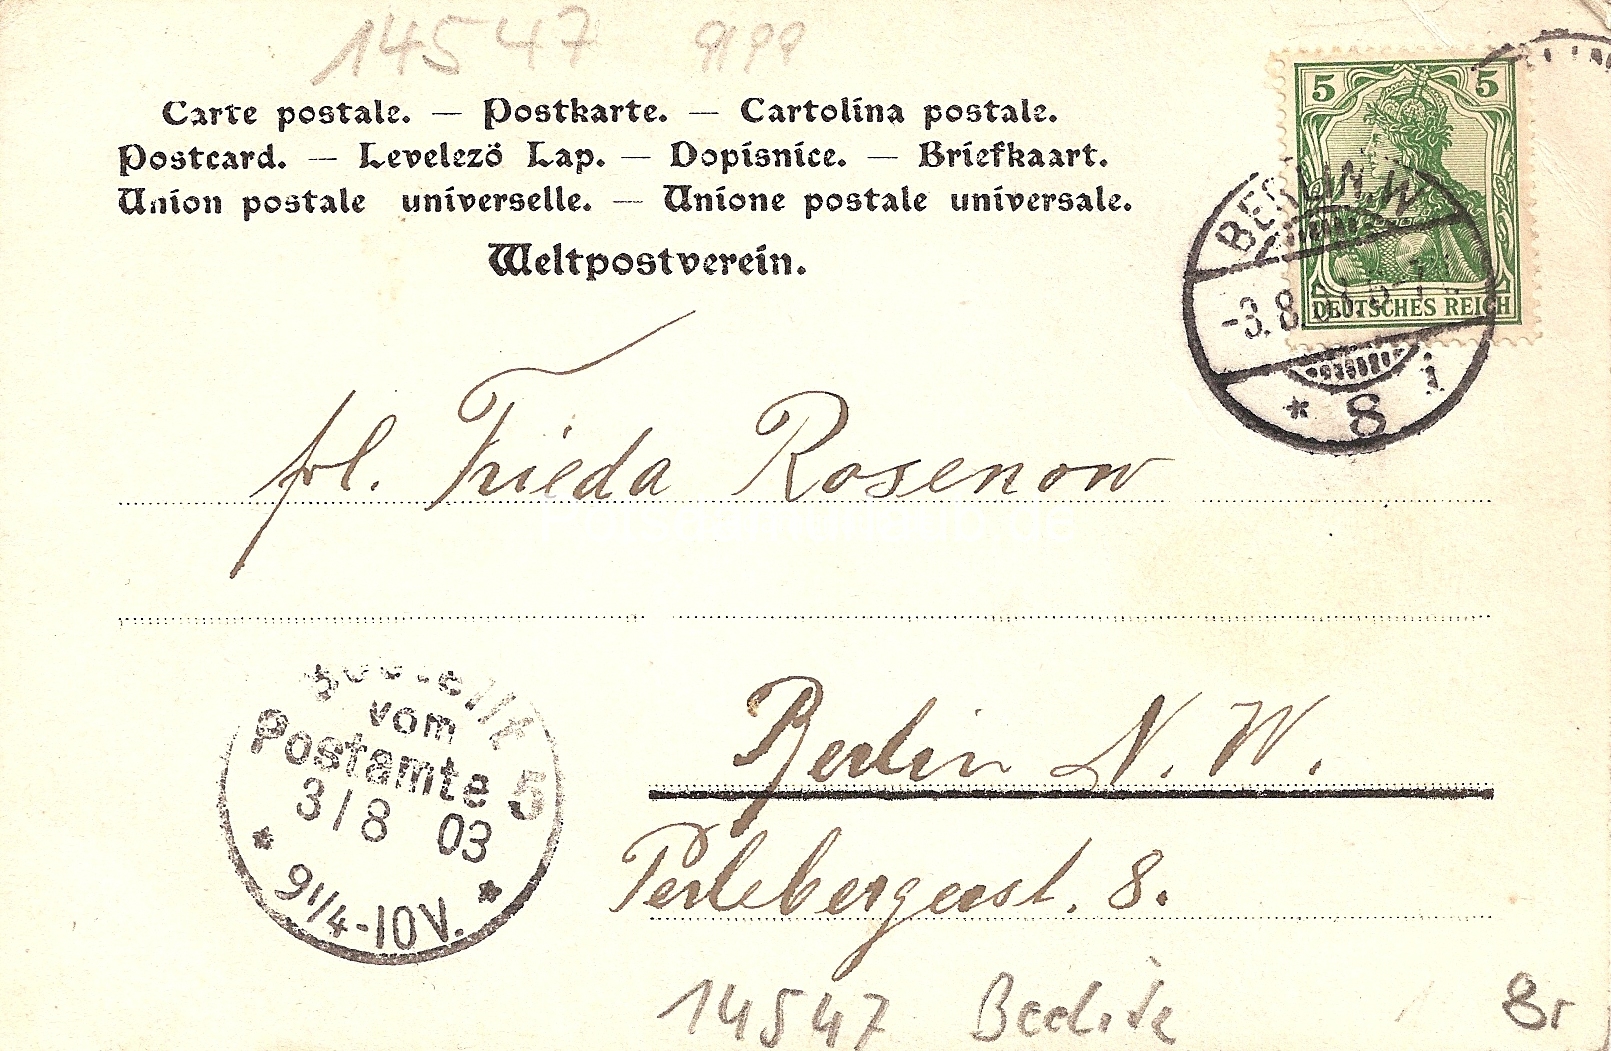 14547 9199
Carte postale. — Postkarte. — Cartolina postale.
Postcard. — Levelezö Lap. — Dopisnice. — Briefkaart.
Union postale universelle. — Unione postale universale.
Weltpostverein.
5 5
DEUTSCHES REICH
BERLIN. W
-3.8.
* 8 i
frl. Frieda Rosenow
Potsdamurlaub.de
Bestellt
vom
Postamte 5
3/8 03
* 9 1/4-10V. *
Berlin N. W.
Perlebergerst. 8.
14547 Beelitz Br